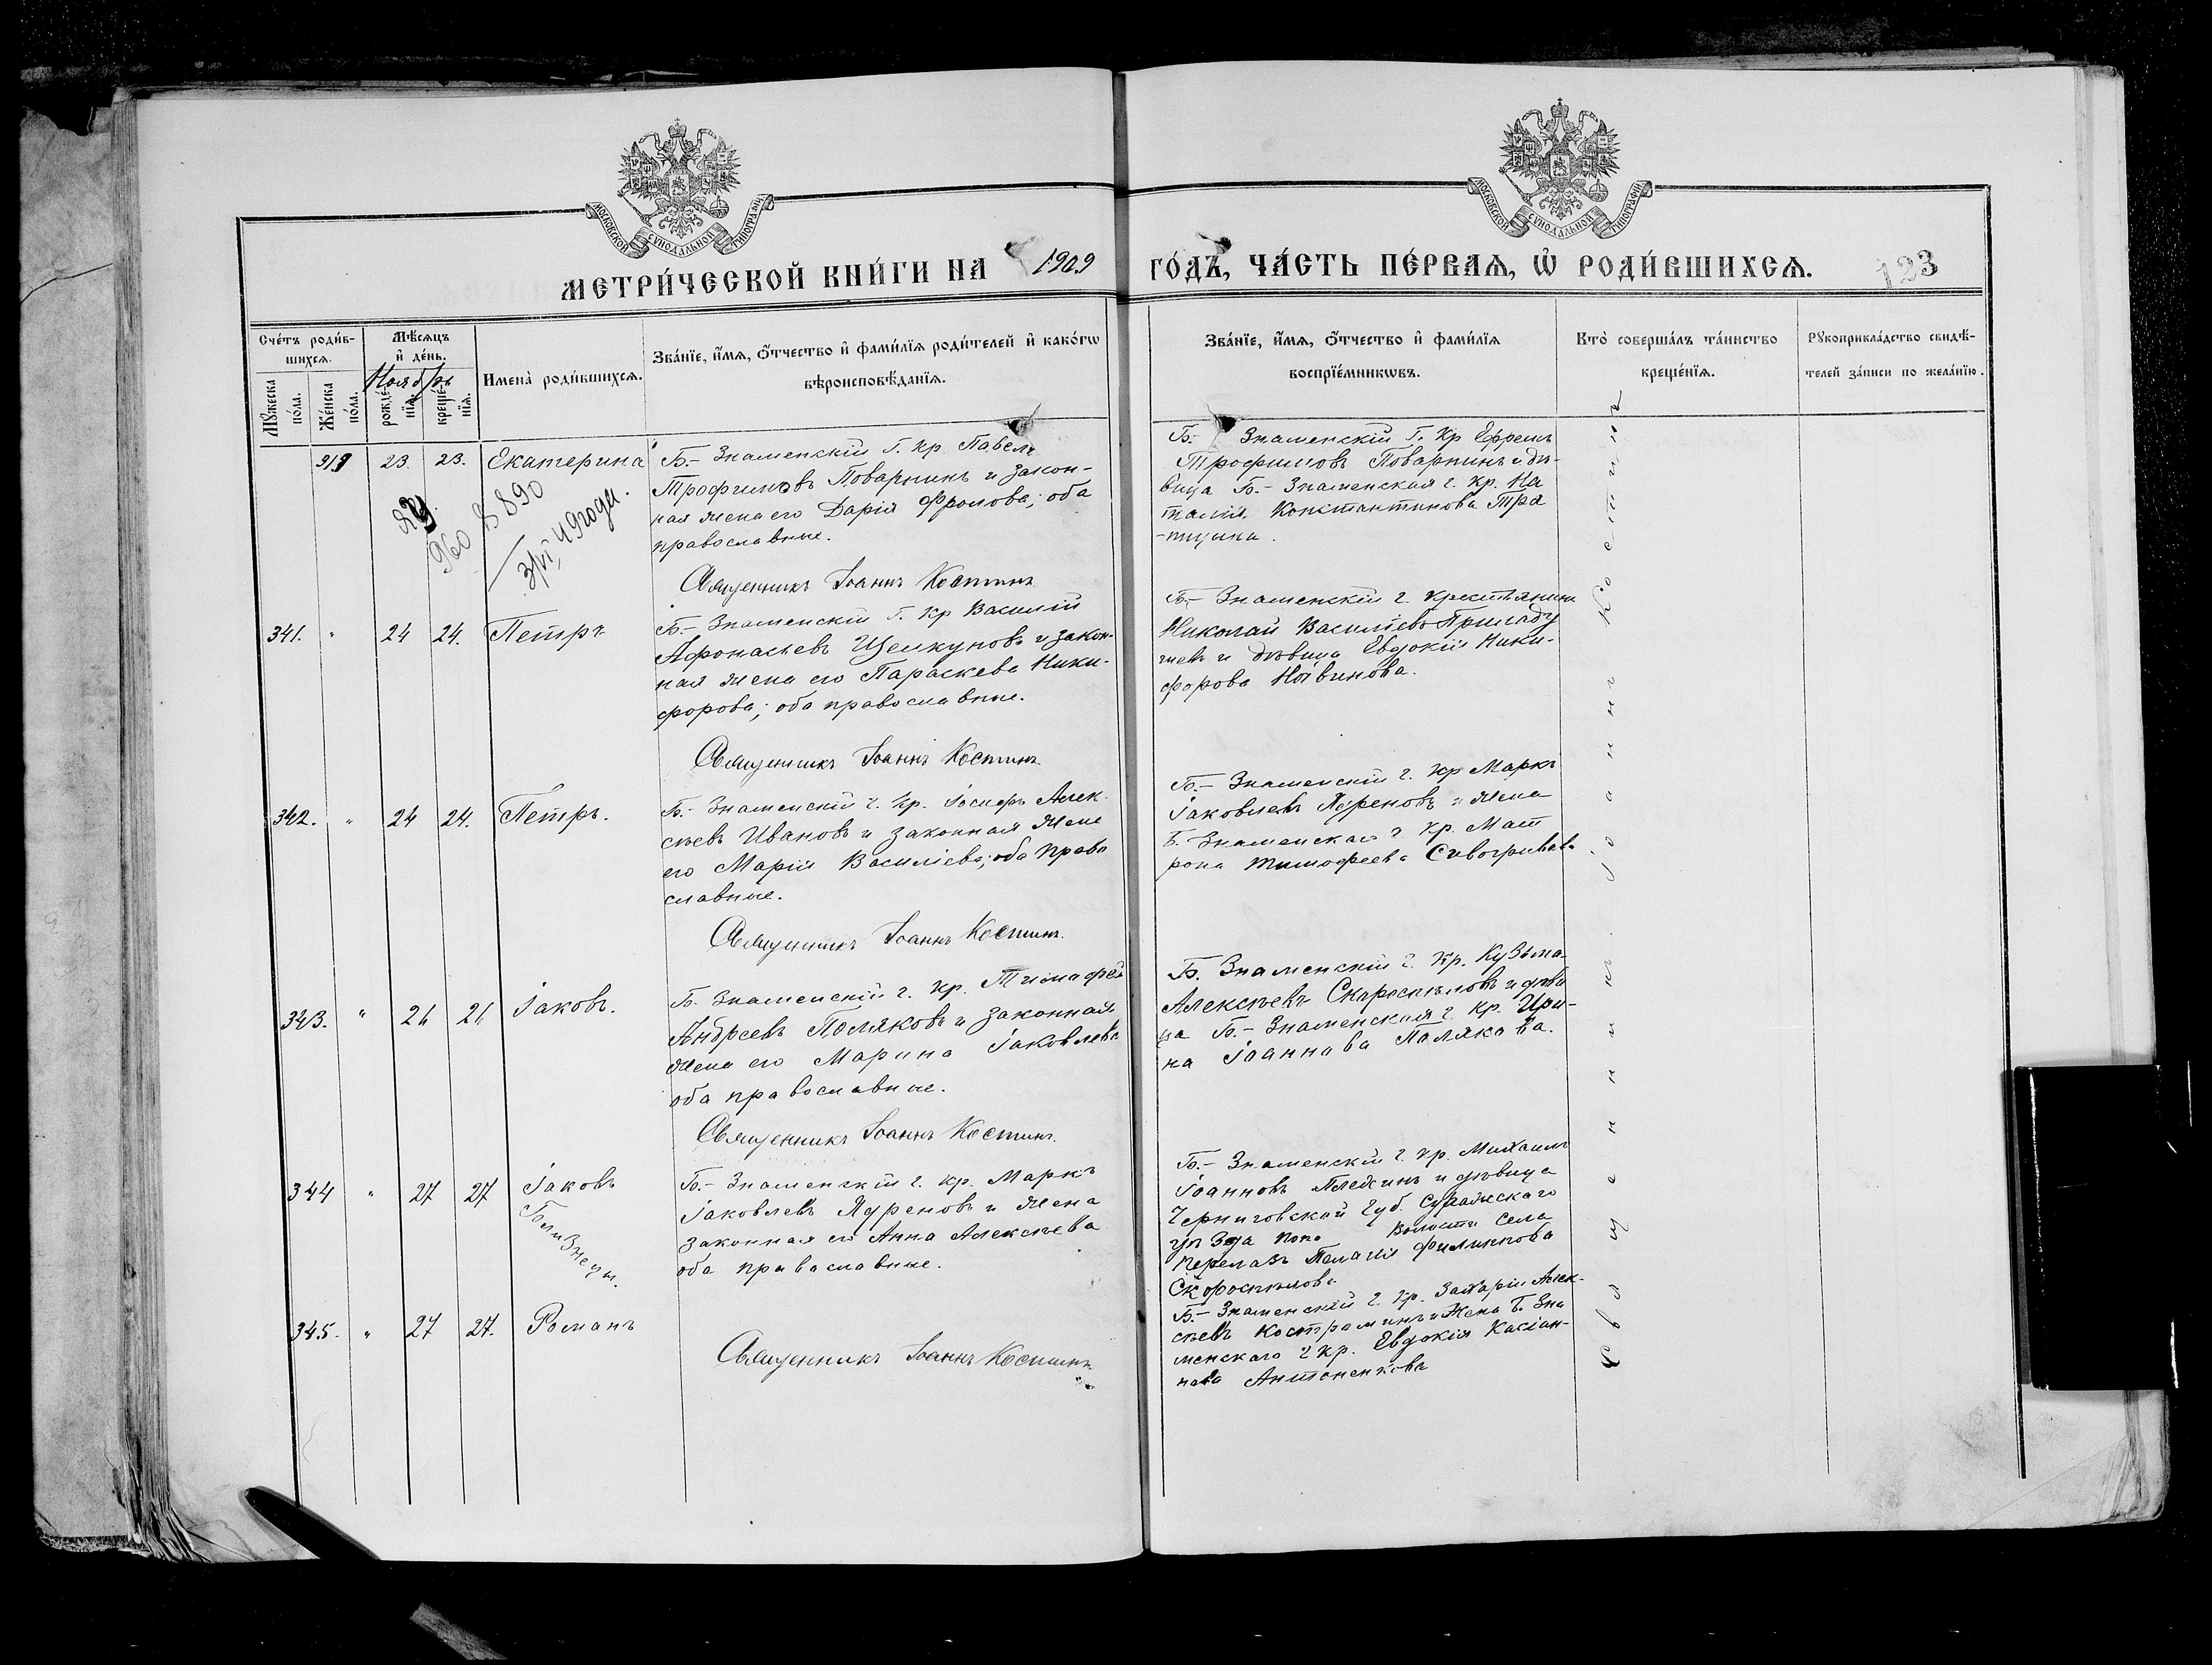 МОСКОВСКОЙ СУНОДАЛЬНОЙ ТИПОГРАФІИ
МОСКОВСКОЙ СУНОДАЛЬНОЙ ТИПОГРАФІИ
МЕТРИ́ЧЕСКОЙ КНИ́ГИ НА 1909 ГО́ДЪ, ЧА́СТЬ ПЕ́РВАЯ, Ѿ РОДИ́ВШИХСЯ.
123
Сче́тъ роди́в-
шихся.
Му́жеска по́ла.
Же́нска по́ла.
Мѣ́сяцъ
и҆ де́нь.
Ноябрь
рожде́-
нїя.
креще́-
нїя.
И҆мена̀ роди́вшихся.
Зва́нїе, и҆́мя, ѻ҆́тчество и҆ фами́лїя роди́телей и҆ како́гѡ
вѣроисповѣ́данїя.
Зва́нїе, и҆́мя, ѻ҆́тчество и҆ фами́лїя
воспрїе́мникѡвъ.
Кто̀ соверша́лъ та́инство
креще́нїя.
Рꙋкоприкла́дство свидѣ́-
телей за́писи по жела́нїю.
23. 23. Екатерина
Б.- Знаменскій Г. Кр. Павелъ
Трофимовъ Поварнинъ и закон-
ная жена его Дарія Фролова; оба
православные.
Священникъ Іоаннъ Костинъ
Б.- Знаменскій Г. Кр Ефремъ
Трофимовъ Поварнинъ и дѣ-
вица Б.- Знаменская г. Кр. На
талія Константинова Тра
-пицина.
960 8890
зрі, 49 года.
341. " 24 24. Петръ
Б.- Знаменскій Г. Кр Василій
Афонасьевъ Щелкуновъ и закон-
ная жена его Параскева Ники-
форова; оба православные.
Священникъ Іоаннъ Костинъ
Б.- Знаменскій г. Крестьянинъ
Николай Василіевъ
и дѣвица Евдокія Ники-
форова
342. " 24 24. Петръ.
Б.- Знаменскій г. Кр. Іосифъ Алек-
сѣевъ Ивановъ и законная жена
его Марія Василіева; оба право
славные.
Священникъ Іоаннъ Костинъ.
Б.- Знаменскій г. Кр Маркъ
Іаковлевъ Ядреновъ и жена
Б. Знаменская г Кр. Мат
рона Тимофеева
343. " 26 26 Іаковъ.
Б. Знаменскій г. Кр. Тимофей
Андреевъ Поляковъ и законная
жена его Марина Іаковлева
оба православные.
Священникъ Іоаннъ Костинъ.
Б. Знаменскій г. Кр. Кузьма
Алексѣевъ Скороспѣловъ и дѣви
ца Б.- Знаменская г. Кр. Ири-
на Іоаннова Полякова.
344 " 27 27 Іаковъ
Близнецы.
Б.- Знаменскій г. Кр. Маркъ
Іаковлевъ Ядреновъ и жена
законная его Анна Алексѣева
оба православные.
Б.- Знаменскій г. Кр. Михаилъ
Іоанновъ и дѣвица
Черниговской Губ. Суражскаго
уѣзда Волости Села
Перелазъ Пелагія Филиппова
Скороспѣлова
345. " 27 27. Романъ
Священникъ Іоаннъ Костинъ
Б.- Знаменскій г. Кр. Захарій Алек-
сѣевъ Костраминъ и жена Б. Зна
менскаго г Кр. Евдокія Касіан-
нова Антоненкова
Священникъ Іоаннъ Костинъ